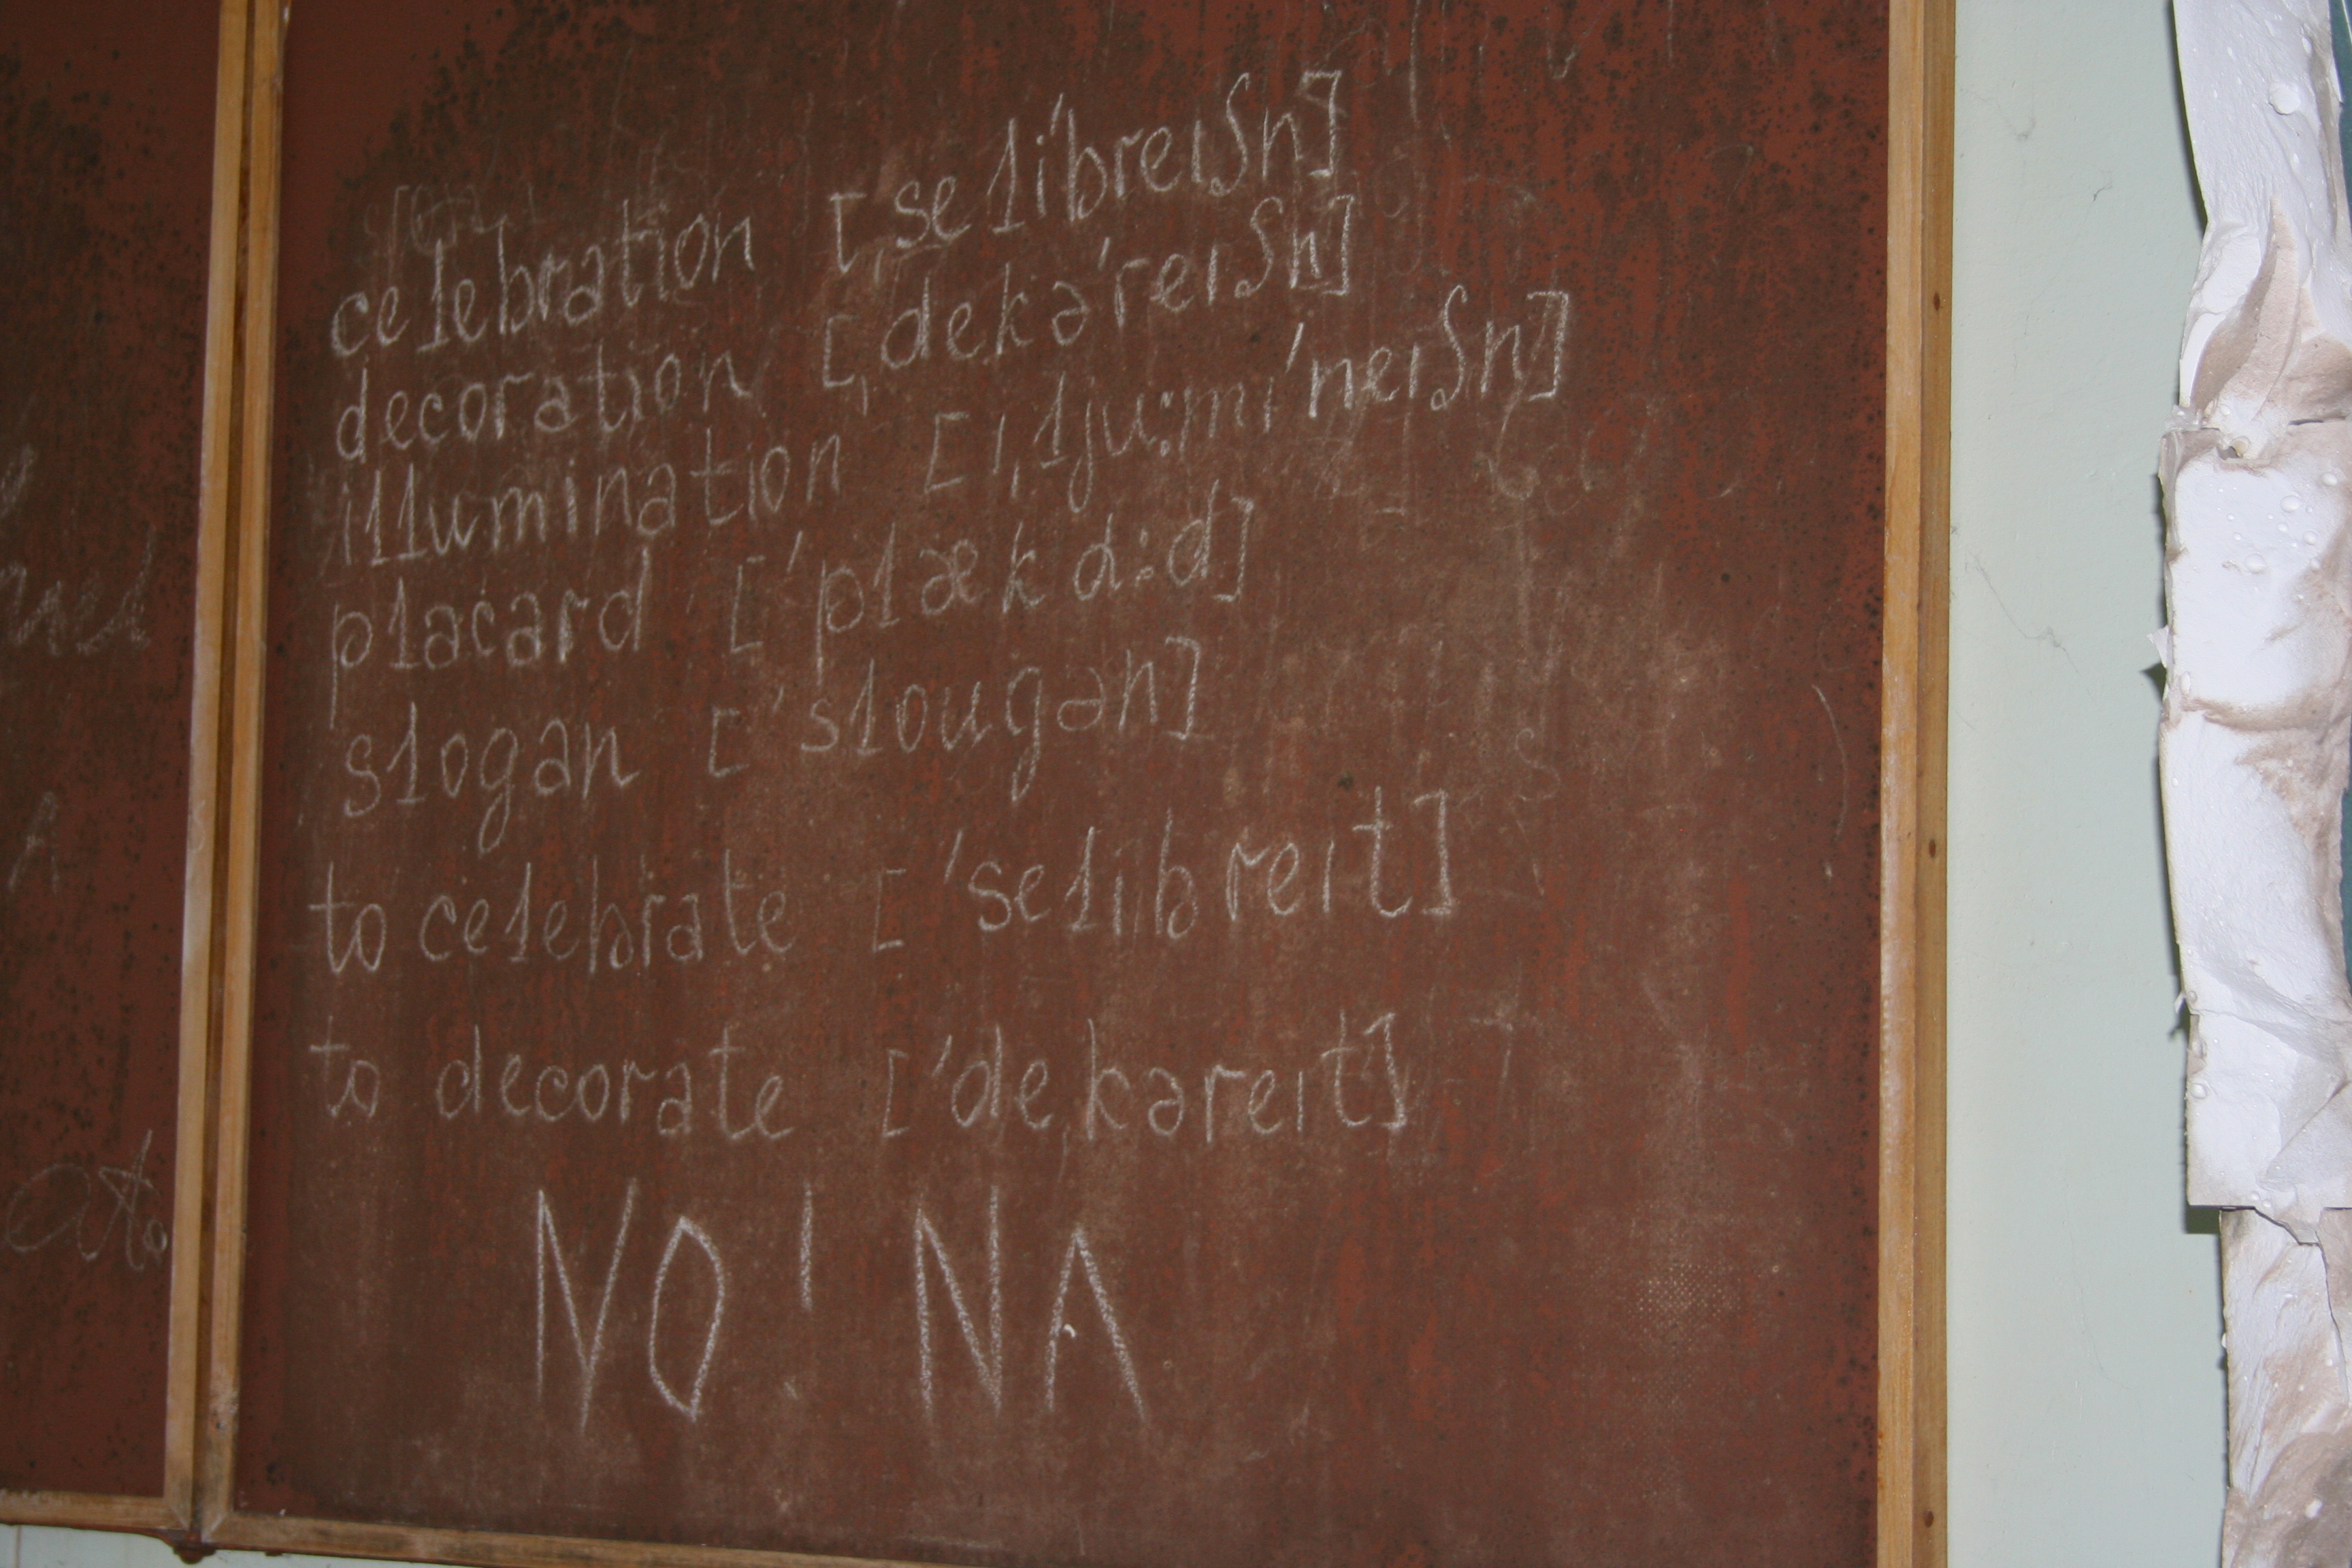 celebration [ˌseli'breıʃn]
decoration [ˌdekə'reıʃn]
illumination [ıˌlju:mı'neıʃn]
placard ['plækɑ:d]
slogan ['slougən]
to celebrate ['selıbreıt]
to decorate ['dekəreıt]
NO! NA